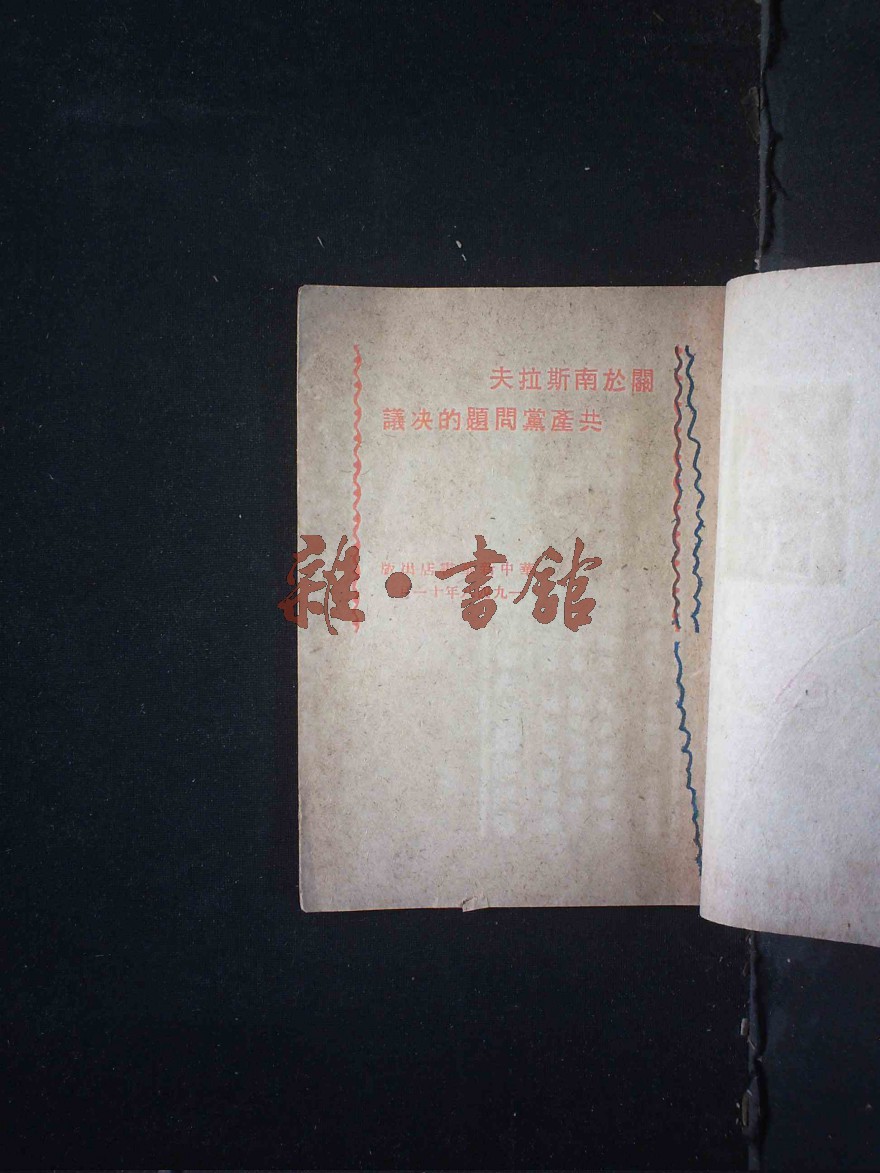 關於南斯拉夫
共產黨問題的決議
華中新華書店出版
一九四八年十一月
雜·書館